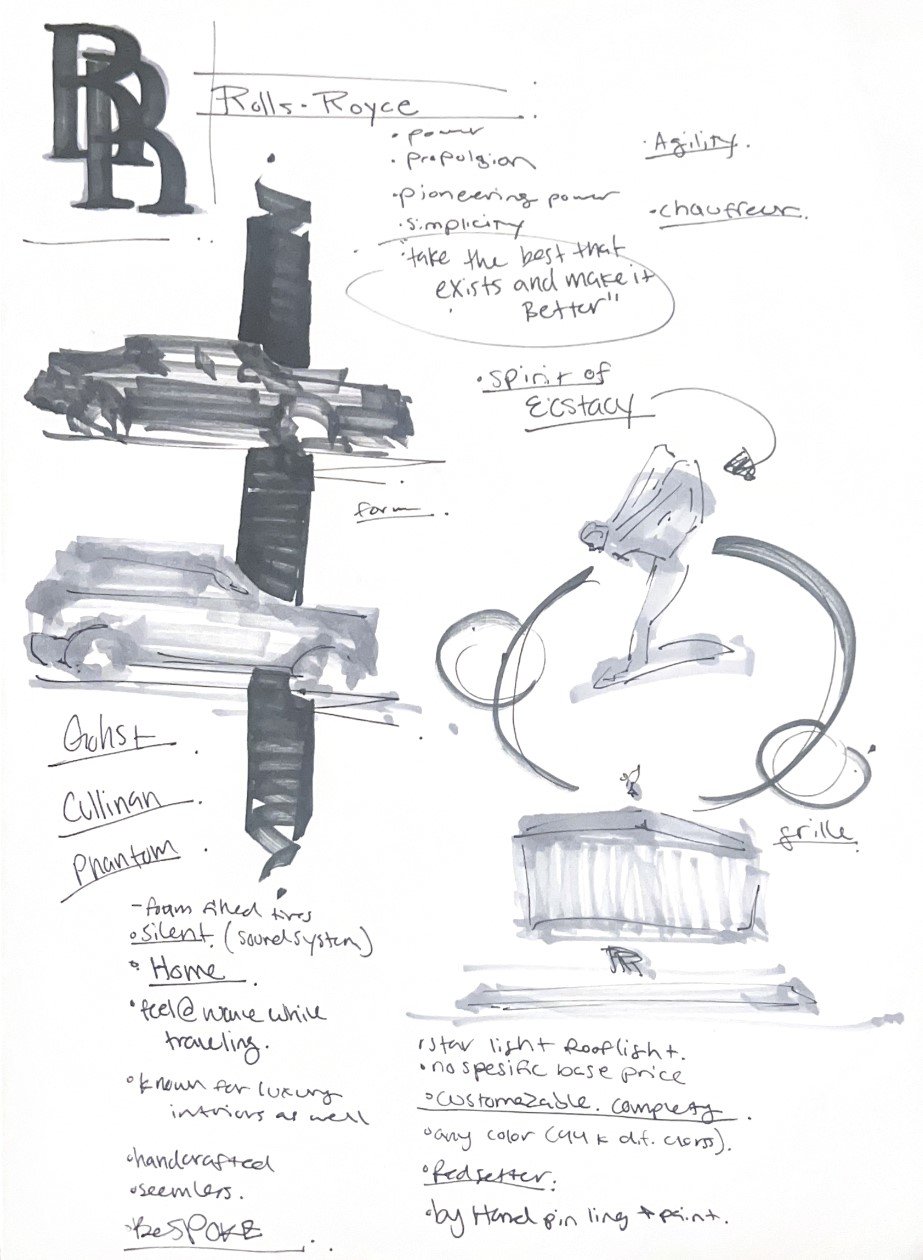 RR
Rolls-Royce
• power
• propulgian
• pioneering power
• simplicity
• Agility.
• chauffeur.
"take the best that
exists and make it
Better"
• spirit of
Ecstacy
form
Gohst
Cullinan
Phantom
grille
RR
- foam filled tires
• silent. (soundsystem)
• Home
• feel@ home while
traveling.
• known for luxury
intriors as well
• handcrafted
• seemlers.
• BeSPOKE
• star light Rooflight.
• no spesific base price
• customazable. complety
• any color (44k dif. clors).
• Redsetter.
• by Hand pin ling + paint.